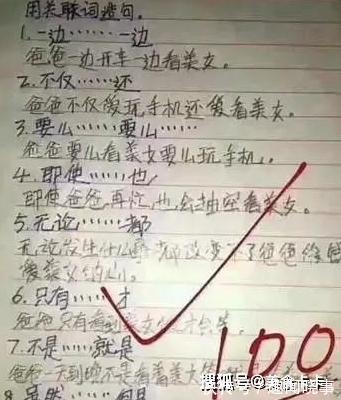 用关联词造句。
1.一边……一边
爸爸一边开车一边看美女。
2.不仅……还
爸爸不仅爱玩手机还爱看美女。
3.要么……要么……
爸爸要么看美女要么玩手机。
4.即使……也
即使爸爸再忙,也会抽空看美女。
5.无论……都
无论发生什么事都改变不了爸爸
爱美女的心。
6.只有……才
爸爸只有看到美女才会笑。
7.不是……就是
爸爸一天到晚不是看着美女
8.虽然……但是
100
搜狐号@